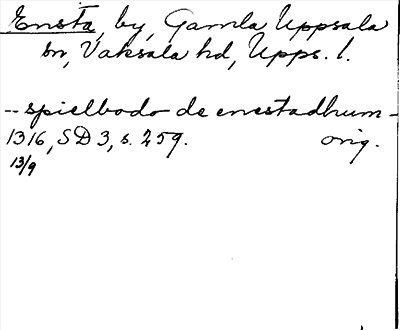 Ensta, by, Gamla Uppsala
sn, Vaksala hd, Upps. l.
-- spielbodo de enestadhum -
1316, SD 3, s. 259. orig.
13/9